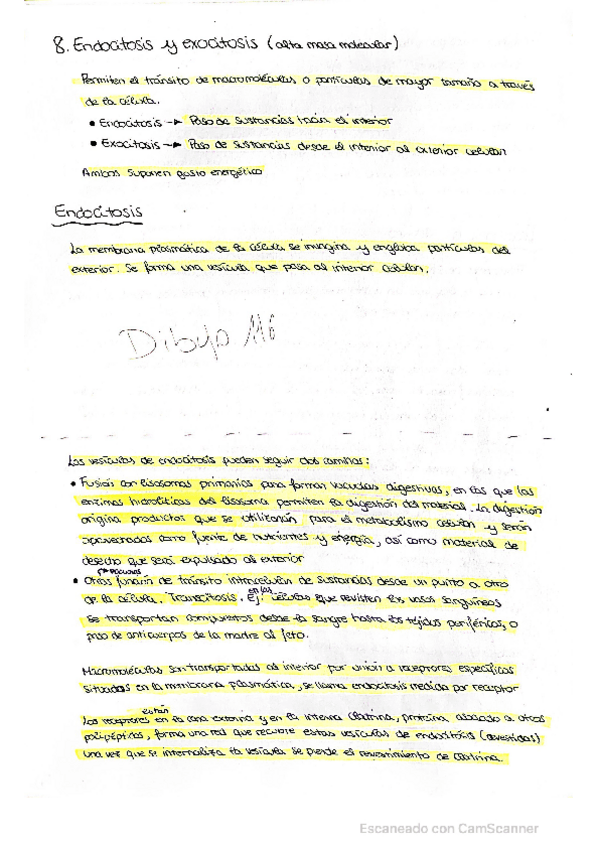 8. Endocitosis y exocitosis (alta masa molecular)
Permiten el tránsito de macromoléculas o partículas de mayor tamaño a través
de la célula.
• Endocitosis → Paso de sustancias hacia el interior
• Exocitosis → Paso de sustancias desde el interior al exterior celular
Ambos suponen gasto energético
Endocitosis
La membrana plasmática de la célula se invagina y engloba partículas del
exterior. Se forma una vesícula que pasa al interior celular.
Dibujo 116
Las vesículas de endocitosis pueden seguir dos caminos:
• Fusión con lisosomas primarios para formar vacuolas digestivas, en las que las
enzimas hidrolíticas del lisosoma permiten la digestión del material. La digestión
origina productos que se utilizarán para el metabolismo celular y serán
aprovechados como fuente de nutrientes y energía, así como material de
desecho que será expulsado al exterior
• Otras función de tránsito intracelular de sustancias desde un punto a otro
de la célula. Transcitosis. Ej: en las células que revisten los vasos sanguíneos
se transportan compuestos desde la sangre hasta los tejidos periféricos, o
paso de anticuerpos de la madre al feto.
Macromoléculas son transportadas al interior por unión a receptores específicos
situados en la membrana plasmática, se llama endocitosis mediada por receptor
Los receptores están en la cara externa y en la interna clatrina, proteína, asociada a otros
polipéptidos, forma una red que recubre estas vesículas de endocitosis (revestidas)
una vez que se internaliza la vesícula se pierde el revestimiento de clatrina.
Escaneado con CamScanner